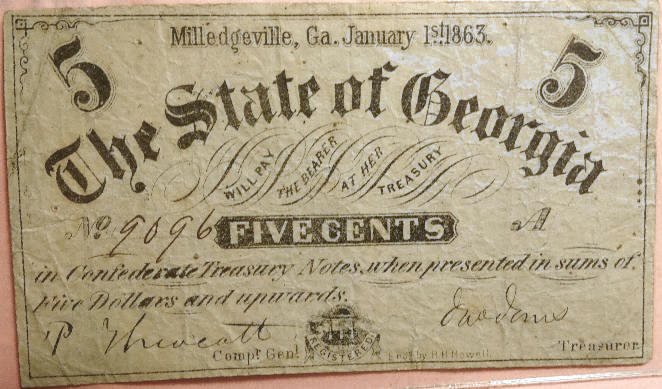 5 Milledgeville, Ga. January 1st 1863. 5
The State of Georgia
WILL PAY THE BEARER AT HER TREASURY
No 9096 FIVE CENTS A
in Confederate Treasury Notes, when presented in sums of
Five Dollars and upwards.
Compt Genl REGISTERED Treasurer
R. H. Howell